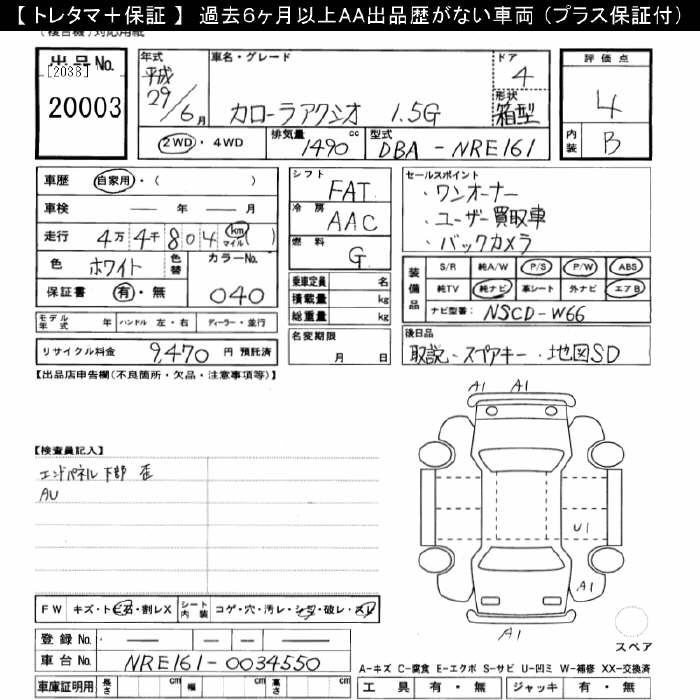 【 トレタマ＋保証 】 過去6ヶ月以上AA出品歴がない車両 (プラス保証付)
(複合機)対応用紙
出品No.
[2038]
20003
年式
平成
29/6月
車名・グレード
カローラアクシオ 1.5G
ドア
4
形状
箱型
2WD・4WD
排気量
1490 cc
型式
DBA-NRE161
評価点
4
内装
B
車歴 自家用・( )
車検 ― 年 ― 月
走行 4万4千804 km マイル ( )
色 ホワイト 色替 カラーNo.
保証書 有・無 040
モデル年式 年 ハンドル 左・右 ディーラー・並行
リサイクル料金 9,470 円 預託済
シフト FAT
冷房 AAC
燃料 G
乗車定員 名
積載量 kg
総重量 kg
名変期限
月 日
セールスポイント
・ワンオーナー
・ユーザー買取車
・バックカメラ
装備品
S/R 純A/W P/S P/W ABS
純TV 純ナビ 革シート 外ナビ エアB
ナビ型番: NSCD-W66
後日品
取説・スペアキー・地図SD
【出品店申告欄(不良箇所・欠品・注意事項等)】
【検査員記入】
エンドパネル下部 歪
AU
A1 A1
U1
A1
A1
スペア
FW キズ・トビ石・割レX シート内装 コゲ・穴・汚レ・シワ・破レ・スレ
登録No. ― ― ―
車台No. NRE161-0034550
車庫証明用 長さ cm 幅 cm 高さ cm
A－キズ C－腐食 E－エクボ S－サビ U－凹ミ W－補修 XX－交換済
工具 有・無 ジャッキ 有・無